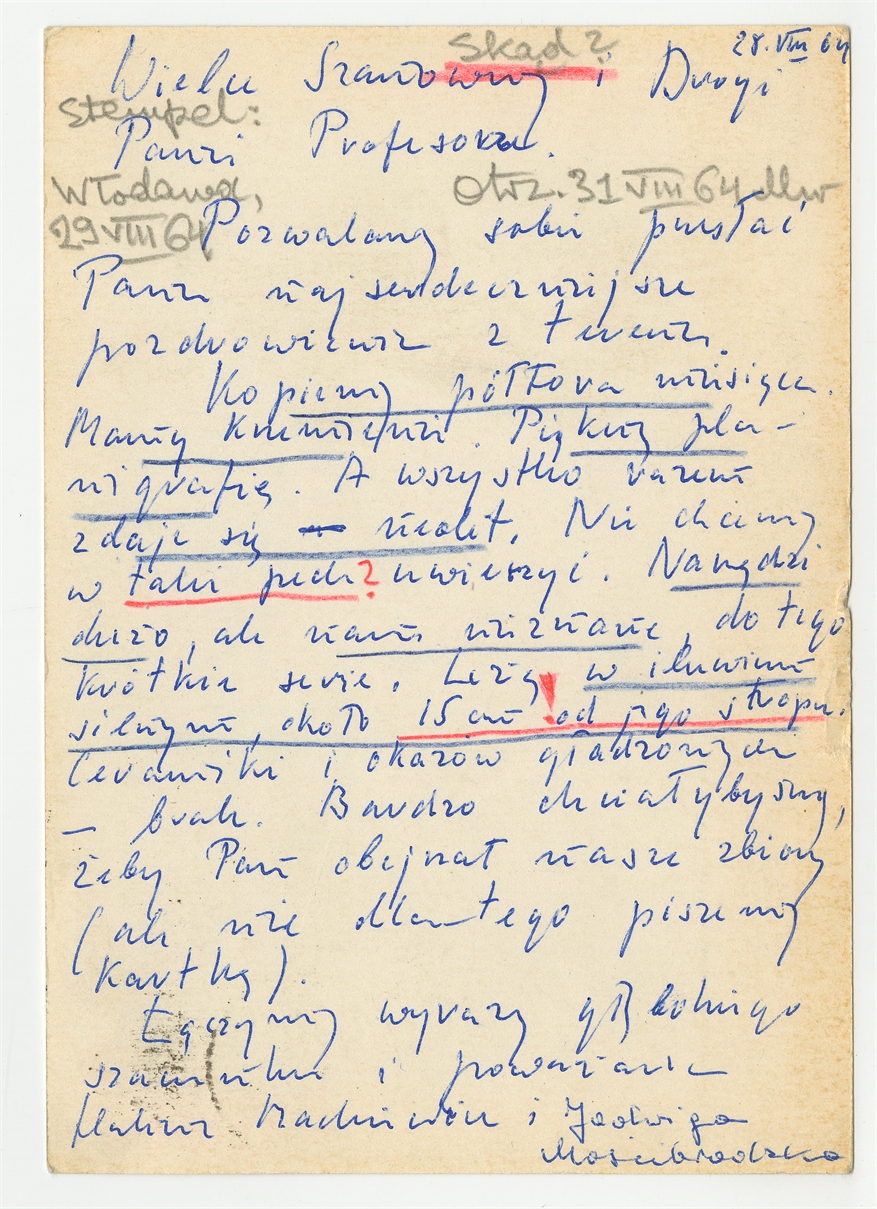 Skąd?
28. VIII 64
Wielce Szanowny i Drogi
Stempel:
Panie Profesorze.
Włodawa,
29 VIII 64
otrz. 31 VIII 64
Pozwalamy sobie przesłać
Panu najserdeczniejsze
pozdrowienia z terenu.
Kopiemy półtora miesiąca.
Mamy krzemienie. Piękną pla-
nigrafię. A wszystko razem
zdaje się neolit. Nie chcemy
w taki pech? uwierzyć. Narzędzi
dużo, ale nam nieznane, do tego
krótkie serie. Leżą w iluwium
silnym, około 15 cm ! od jego stropu.
Ceramiki i okazów gładzonych
– brak. Bardzo chciałybyśmy,
żeby Pan obejrzał nasze zbiory
(ale nie dlatego piszemy
kartkę).
Łączymy wyrazy głębokiego
szacunku i poważanie
Halina i Jadwiga
Mościbrodzka